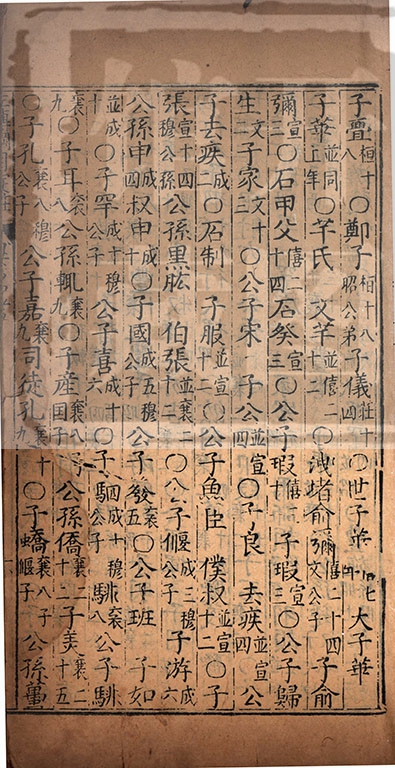 子亹桓十八○鄭子桓十八昭公弟子儀莊十四○世子華僖七大子華
子華並同上年○芊氏文芊並僖二十二○洩堵俞彌僖二十四文公子子俞
彌宣三○石甲父僖二十四石癸宣三○公子瑕僖三十子瑕宣三○公子歸
生文二子家文十○公子宋子公並宣四○子良去疾並宣四公
子去疾成二○石制子服並宣十二○公子魚臣僕叔並宣十二○子
張宣十四穆公孫公孫黑肱伯張並襄二十二○公子偃成三穆公子子游成六
公孫申成四叔申成十○子國成五穆公子公子發襄五○公子班子如
並成十○子罕成十穆公子公子喜成十六○子駟成十穆公子騑襄八公子騑
襄九○子耳襄八公孫輒襄九○子産襄八国子公孫僑襄二十二子美襄二十五
○子孔襄八穆公子公子嘉襄九司徒孔襄十九○子蟜襄八子偃子公孫蠆